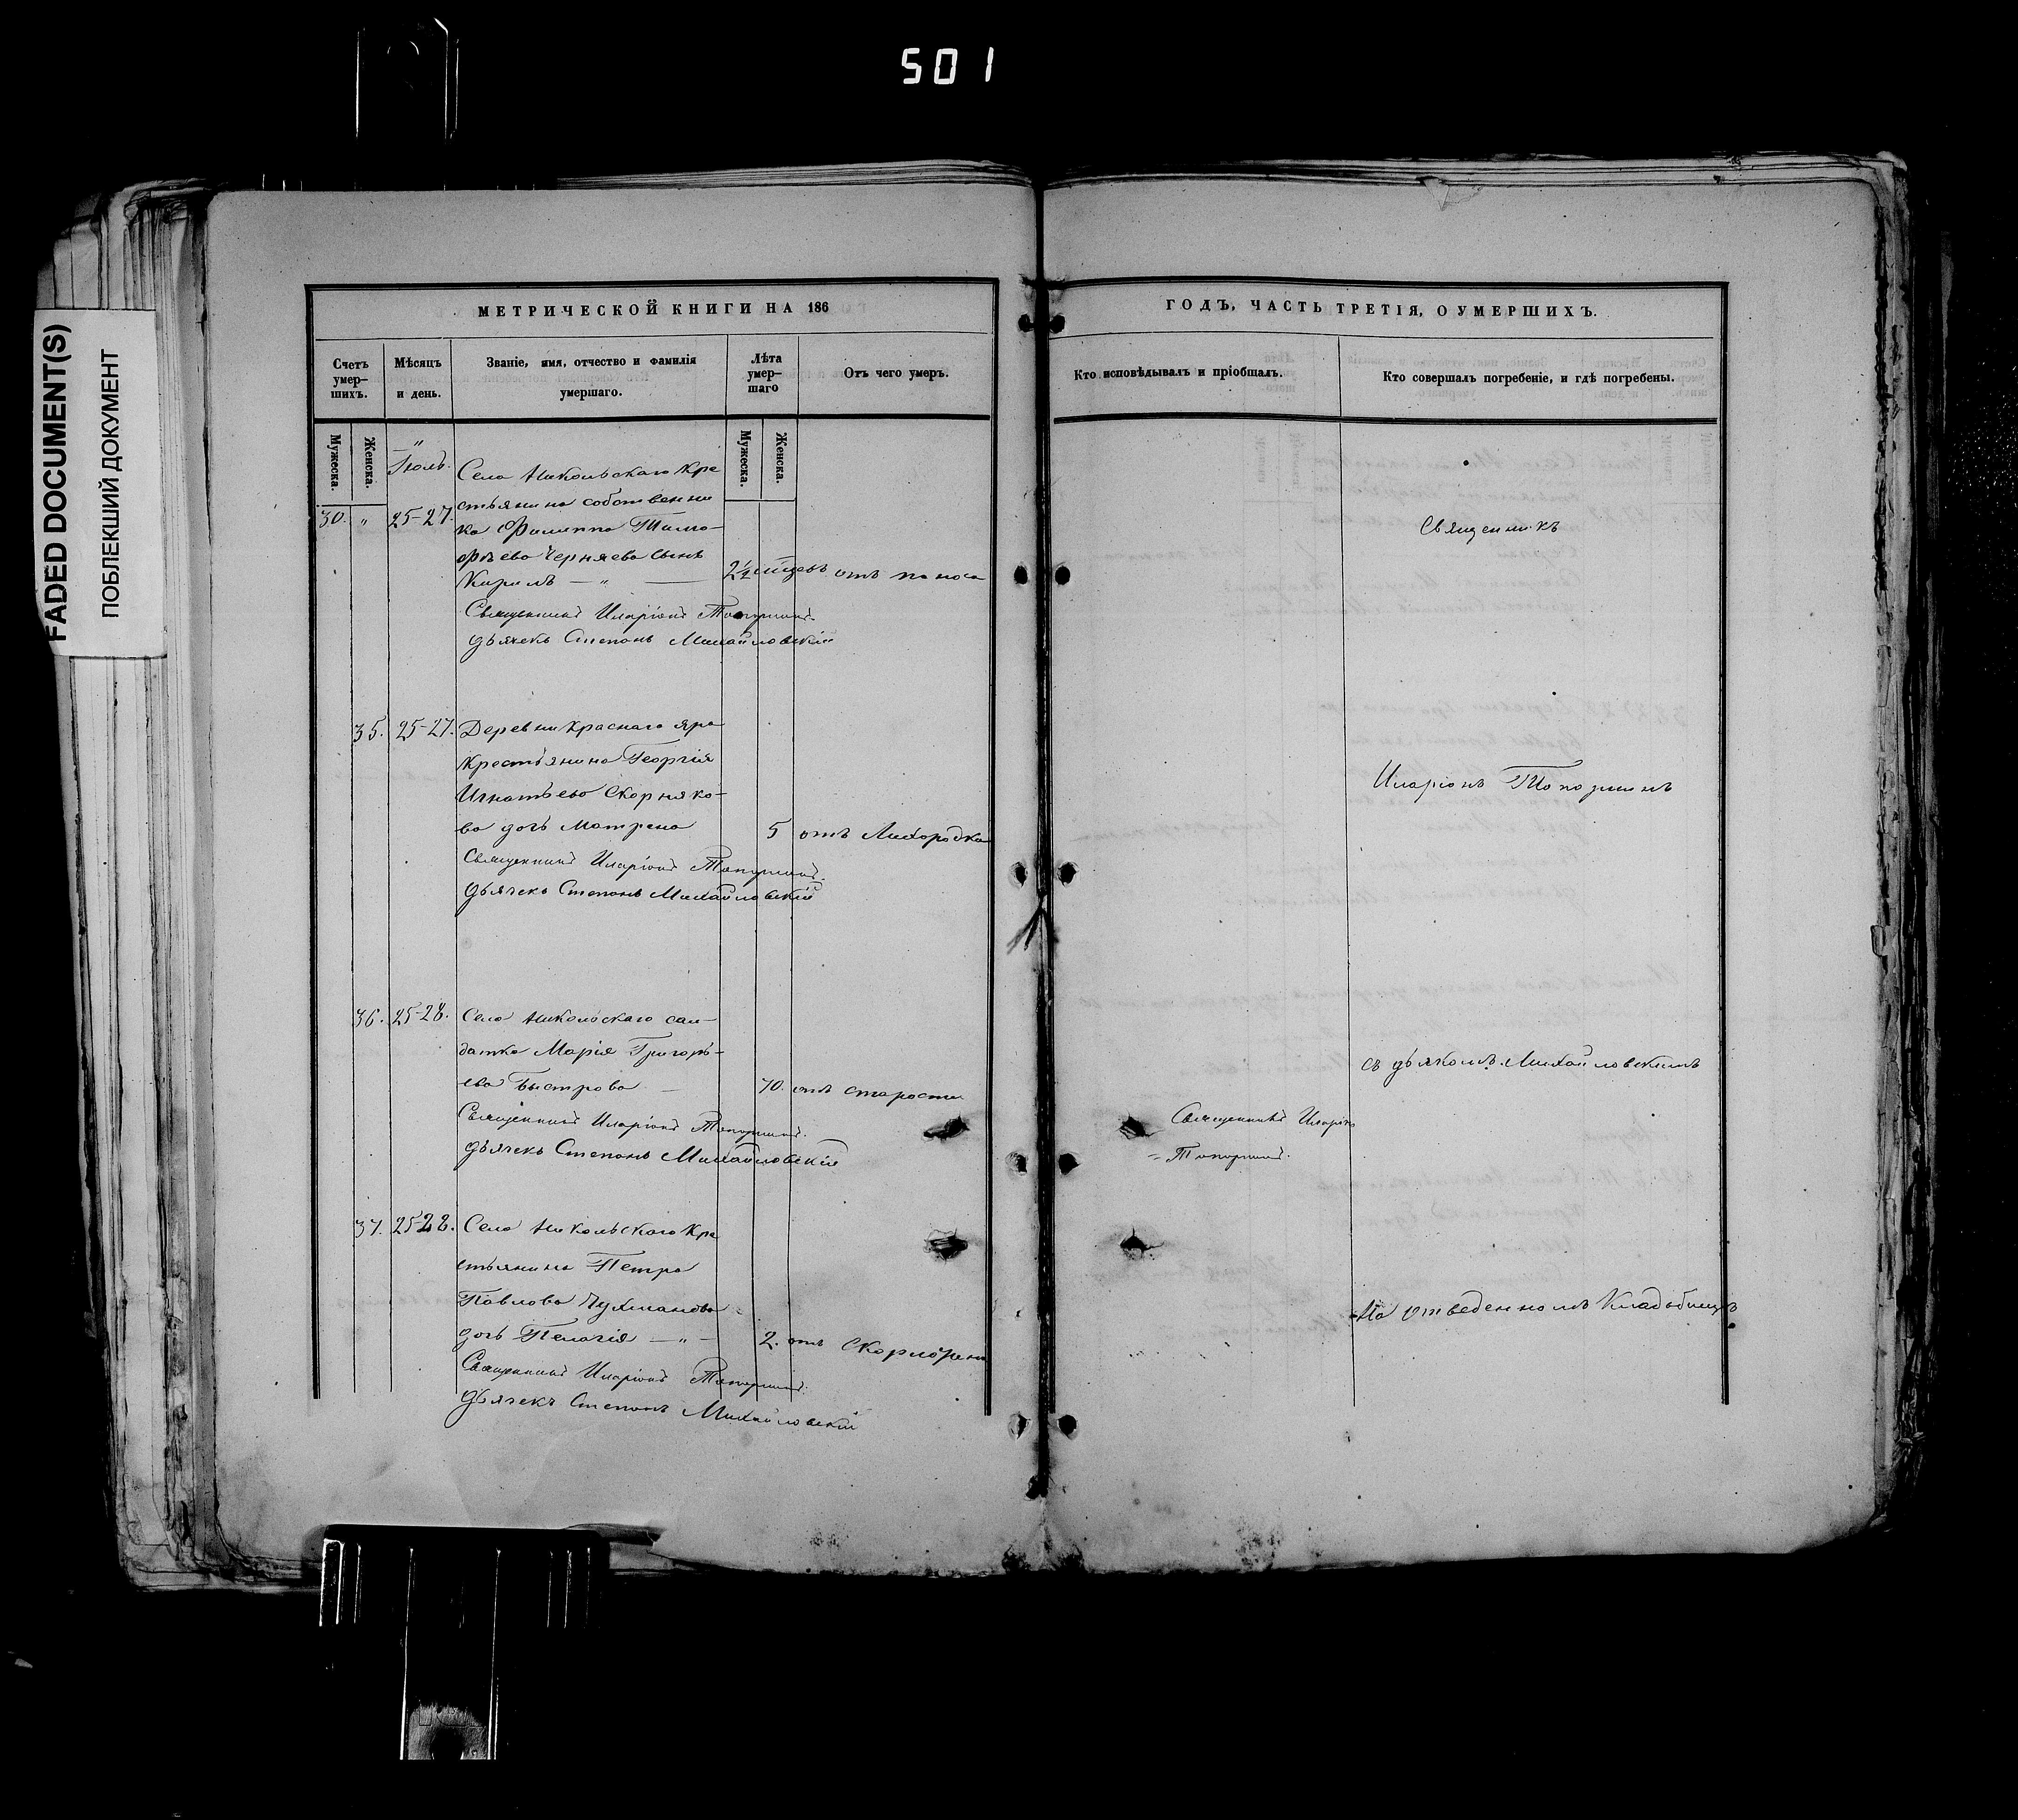 501
FADED DOCUMENT(S)
ПОБЛЕКШИЙ ДОКУМЕНТ
МЕТРИЧЕСКОЙ КНИГИ НА 186
Счетъ умер-
шихъ.
Мѣсяцъ
и день.
Званіе, имя, отчество и фамилія
умершаго.
Лѣта
умер-
шаго
Отъ чего умеръ.
Мужеска.
Женска.
Мужеска.
Женска.
Іюль.
30. „ 25-27.
Села Никольскаго кре
стьянина собственни
ка Филиппа Тимо-
фѣева Черняева сынъ
Кирилъ — „ — 2½ отъ поноса
Священникъ Иларіонъ Топорнинъ
дьячекъ Степанъ Михайловскій
35. 25-27. Деревни Краснаго яра
крестьянина Георгія
Игнатьева Скорняко-
ва дочь Матрена 5 отъ Лихорадки
Священникъ Иларіонъ Топорнинъ.
дьячекъ Степанъ Михайловскій
36. 25-28. Села Никольскаго сал-
датка Марія Григорь-
ева Быстрова — 70. отъ старости
Священникъ Иларіонъ Топорнинъ.
дьячекъ Степанъ Михайловскій
37. 25-28. Села Никольскаго кре
стьянина Петра
Павлова
дочь Пелагія — „ — 2. отъ
Священникъ Иларіонъ Топорнинъ.
дьячекъ Степанъ Михайловскій
ГОДЪ, ЧАСТЬ ТРЕТІЯ, О УМЕРШИХЪ.
Кто исповѣдывалъ и пріобщалъ.
Кто совершалъ погребеніе, и гдѣ погребены.
Священникъ
Иларіонъ Топорнинъ
съ дьякомъ Михайловскимъ
Священникъ Иларіонъ
Топорнинъ.
На отведенномъ Кладбищѣ